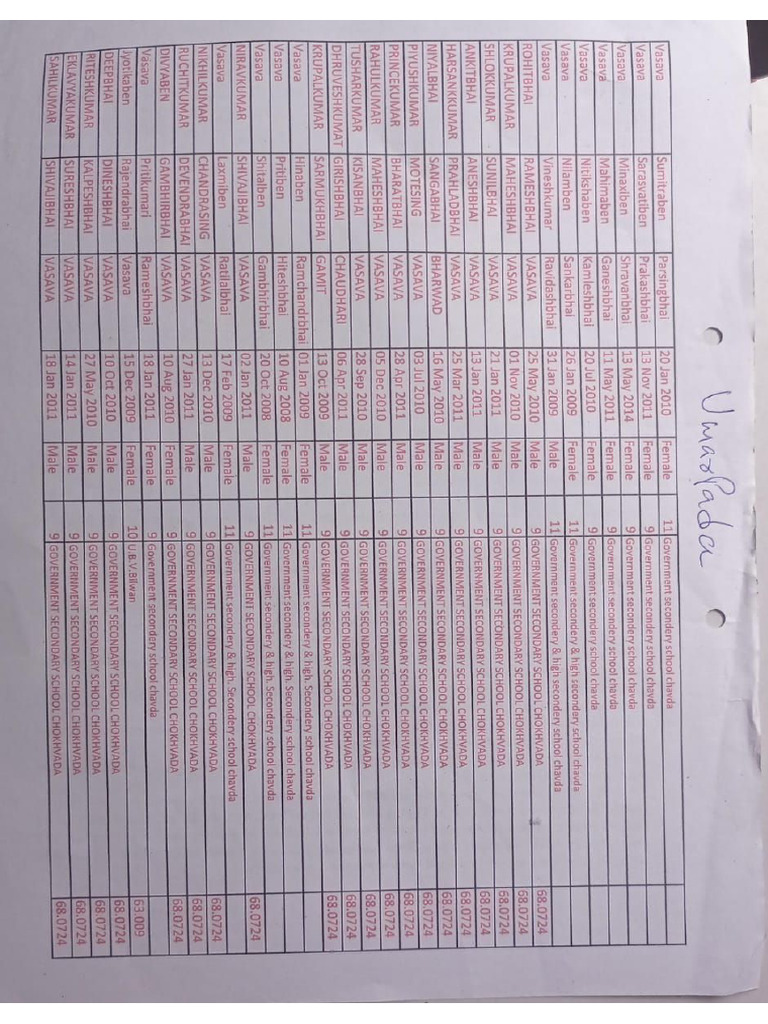 UmarPada
Vasava Sumitraben Parsingbhai 20 Jan 2010 Female 11 Government secondery school chavda
Vasava Sarasvatiben Prakashbhai 13 Nov 2011 Female 9 Government secondery school chavda
Vasava Minaxiben Shravanbhai 13 May 2014 Female 9 Government secondery school chavda
Vasava Mahimaben Ganeshbhai 11 May 2011 Female 9 Government secondery school chavda
Vasava Nitikshaben Kamleshbhai 20 Jul 2010 Female 9 Government secondery school chavda
Vasava Nilamben Sankarbhai 26 Jan 2009 Female 11 Government secondery & high secondery school chavda
Vasava Vineshkumar Ravidashbhai 31 Jan 2009 Male 11 Government secondery & high secondery school chavda
ROHITBHAI RAMESHBHAI VASAVA 25 May 2010 Male 9 GOVERNMENT SECONDARY SCHOOL CHOKHVADA 68.0724
KRUPALKUMAR MAHESHBHAI VASAVA 01 Nov 2010 Male 9 GOVERNMENT SECONDARY SCHOOL CHOKHVADA 68.0724
SHLOKKUMAR SUNILBHAI VASAVA 21 Jan 2011 Male 9 GOVERNMENT SECONDARY SCHOOL CHOKHVADA 68.0724
ANKITBHAI ANESHBHAI VASAVA 13 Jan 2011 Male 9 GOVERNMENT SECONDARY SCHOOL CHOKHVADA 68.0724
HARSANKKUMAR PRAHLADBHAI VASAVA 25 Mar 2011 Male 9 GOVERNMENT SECONDARY SCHOOL CHOKHVADA 68.0724
NIYALBHAI SANGABHAI BHARWAD 16 May 2010 Male 9 GOVERNMENT SECONDARY SCHOOL CHOKHVADA 68.0724
PIYUSHKUMAR MOTESING VASAVA 03 Jul 2010 Male 9 GOVERNMENT SECONDARY SCHOOL CHOKHVADA 68.0724
PRINCEKUMAR BHARATBHAI VASAVA 28 Apr 2011 Male 9 GOVERNMENT SECONDARY SCHOOL CHOKHVADA 68.0724
RAHULKUMAR MAHESHBHAI VASAVA 05 Dec 2010 Male 9 GOVERNMENT SECONDARY SCHOOL CHOKHVADA 68.0724
TUSHARKUMAR KISANBHAI VASAVA 28 Sep 2010 Male 9 GOVERNMENT SECONDARY SCHOOL CHOKHVADA 68.0724
DHRUVESHKUMAT GIRISHBHAI CHAUDHARI 06 Apr 2011 Male 9 GOVERNMENT SECONDARY SCHOOL CHOKHVADA 68.0724
KRUPALKUMAR SARMUKHBHAI GAMIT 13 Oct 2009 Male 9 GOVERNMENT SECONDARY SCHOOL CHOKHVADA 68.0724
Vasava Hinaben Ramchandrbhai 01 Jan 2009 Female 11 Government secondery & high. Secondery school chavda
Vasava Pritiben Hiteshbhai 10 Aug 2008 Female 11 Government secondery & high. Secondery school chavda
Vasava Shitalben Gambhirbhai 20 Oct 2008 Female 11 Government secondery & high. Secondery school chavda
NIRAVKUMAR SHIVAJIBHAI VASAVA 02 Jan 2011 Male 9 GOVERNMENT SECONDARY SCHOOL CHOKHVADA 68.0724
Vasava Laxmiben Ratilalbhai 17 Feb 2009 Female 11 Government secondery & high. Secondery school chavda
NIKHILKUMAR CHANDRASING VASAVA 13 Dec 2010 Male 9 GOVERNMENT SECONDARY SCHOOL CHOKHVADA 68.0724
RUCHITKUMAR DEVENDRABHAI VASAVA 27 Jan 2011 Male 9 GOVERNMENT SECONDARY SCHOOL CHOKHVADA 68.0724
DIVYABEN GAMBHIRBHAI VASAVA 10 Aug 2010 Female 9 GOVERNMENT SECONDARY SCHOOL CHOKHVADA 68.0724
Vasava Pritikumari Rameshbhai 18 Jan 2011 Female 9 Government secondary school chavda
Jyotikaben Rajendrabhai Vasava 15 Dec 2009 Female 10 U.B.V.Biliwan 63.009
DEEPBHAI DINESHBHAI VASAVA 10 Oct 2010 Male 9 GOVERNMENT SECONDARY SCHOOL CHOKHVADA 68.0724
RITESHKUMAR KALPESHBHAI VASAVA 27 May 2010 Male 9 GOVERNMENT SECONDARY SCHOOL CHOKHVADA 68.0724
EKLAVYAKUMAR SURESHBHAI VASAVA 14 Jan 2011 Male 9 GOVERNMENT SECONDARY SCHOOL CHOKHVADA 68.0724
SAHILKUMAR SHIVAJIBHAI VASAVA 18 Jan 2011 Male 9 GOVERNMENT SECONDARY SCHOOL CHOKHVADA 68.0724